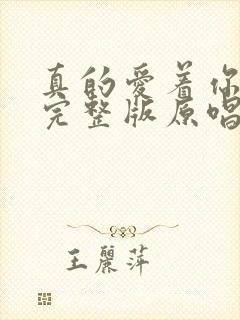 真的愛着你
完整版原唱
王麗萍